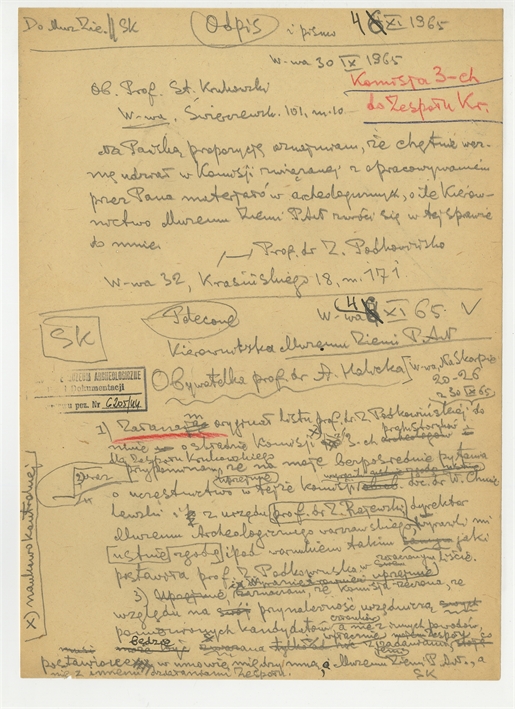 Do Muz. Ziemi // SK Odpis i pismo 4 XI 1965
W-wa 30 IX 1965
Komisja 3-ch
do Zespołu Kr.
Ob. Prof. St. Krukowski
W-wa, Świerczewsk. 101, m. 10
Na Pańską propozycję oznajmiam, że chętnie wez-
mę udział w Komisji związanej z opracowywaniem
przez Pana materjałów archeologicznych, o ile Kierow-
nictwo Muzeum Ziemi PAN zwróci się w tej sprawie
do mnie.
Prof. dr Z. Podkowińska
W-wa 32, Krasińskiego 18, m. 171
Polecone W-wa 4 XI 65. V
SK
Kierowniczka Muzeum Ziemi P.A.N
Obywatelka prof. dr A. Halicka W-wa, Na Skarpie
20-26
z 30 IX 65
MUZEUM ARCHEOLOGICZNE
Dokumentacji
poz. Nr 6205/44
1) oryginał listu prof. dr Z. Podkowińskiej do
mnie o składzie Komisji 3-ch
dla Zespołu Krukowskiego
2) przypominam, że na moje bezpośrednie pytania
o uczestnictwo w tejże komisji doc. dr W. Chmie-
lewski i z urzędu prof. dr Z. Rajewski, dyrektor
Muzeum Archeologicznego warszawskiego, wyrazili mi
ustnie zgodę i pod warunkiem takim jaki
postawiła prof. Z. Podkowińska w liście.
3) zaznaczam, że Komisja zebrana, ze
względu na przynależność urzędniczą
kandydatów, a nie z innych powodów,
będzie
postawione w umowie między mną, a Muzeum Ziemi P.A.N., a
nie z innemi Zespołu.
SK
x) naukowo kontrolnej